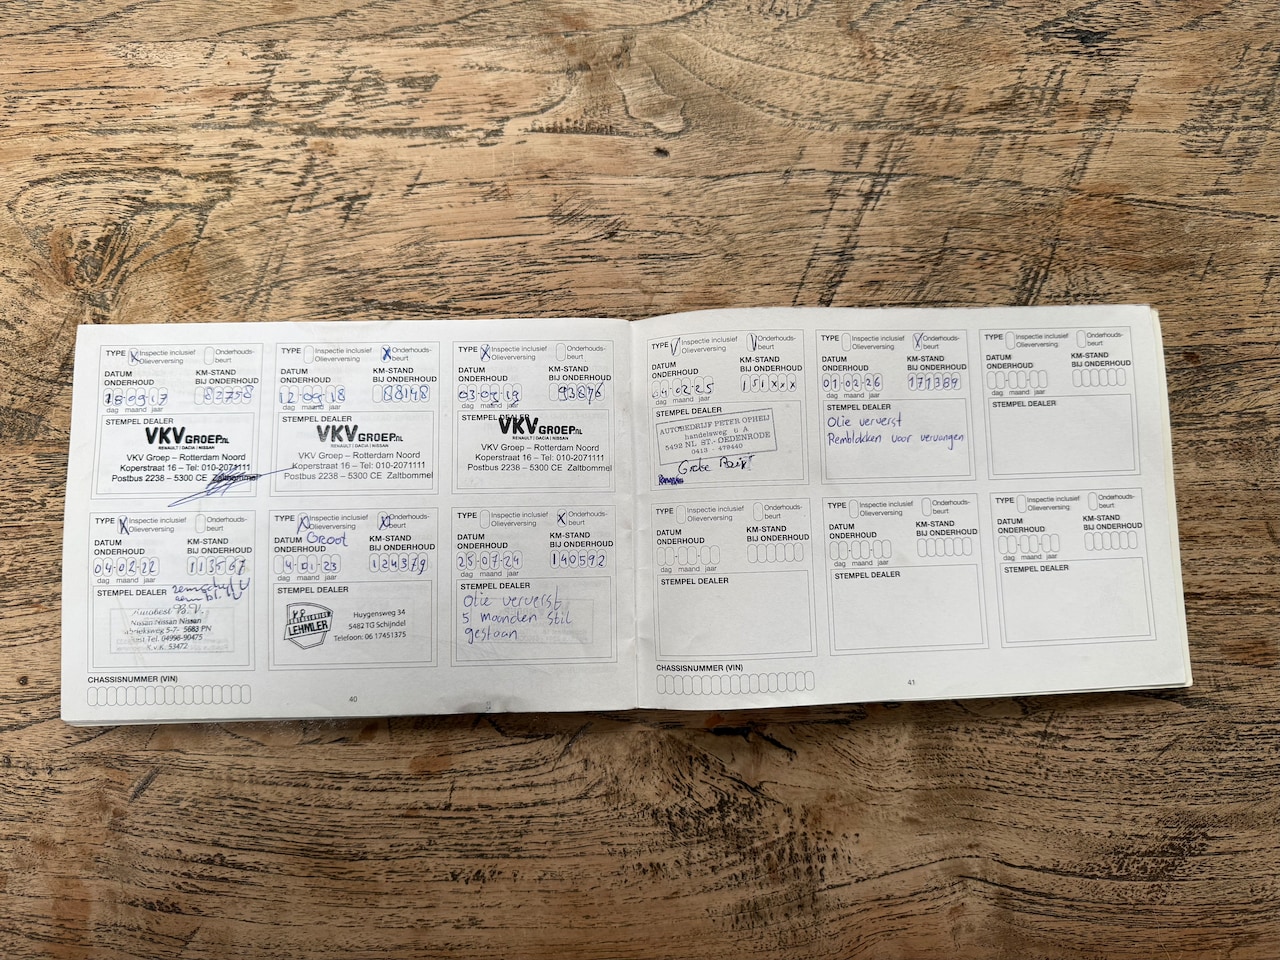 TYPE X Inspectie inclusief Olieverversing Onderhouds-beurt
DATUM ONDERHOUD KM-STAND BIJ ONDERHOUD
18-09-17 82758
dag maand jaar
STEMPEL DEALER
VKV GROEP.NL
RENAULT | DACIA | NISSAN
VKV Groep – Rotterdam Noord
Koperstraat 16 – Tel: 010-2071111
Postbus 2238 – 5300 CE Zaltbommel
TYPE Inspectie inclusief Olieverversing X Onderhouds-beurt
DATUM ONDERHOUD KM-STAND BIJ ONDERHOUD
12-09-18 88148
dag maand jaar
STEMPEL DEALER
VKV GROEP.NL
RENAULT | DACIA | NISSAN
VKV Groep – Rotterdam Noord
Koperstraat 16 – Tel: 010-2071111
Postbus 2238 – 5300 CE Zaltbommel
TYPE X Inspectie inclusief Olieverversing Onderhouds-beurt
DATUM ONDERHOUD KM-STAND BIJ ONDERHOUD
93876
dag maand jaar
STEMPEL DEALER
VKV GROEP.NL
RENAULT | DACIA | NISSAN
VKV Groep – Rotterdam Noord
Koperstraat 16 – Tel: 010-2071111
Postbus 2238 – 5300 CE Zaltbommel
TYPE X Inspectie inclusief Olieverversing Onderhouds-beurt
DATUM ONDERHOUD KM-STAND BIJ ONDERHOUD
04-02-22 113567
dag maand jaar
STEMPEL DEALER
Autobest B.V.
Nissan Nissan Nissan
5-7- 5683 PN
Best Tel. 04998-90475
K.v.K. 53472
TYPE X Inspectie inclusief Olieverversing X Onderhouds-beurt
Groot
DATUM ONDERHOUD KM-STAND BIJ ONDERHOUD
4-01-23 124379
dag maand jaar
STEMPEL DEALER
LEHMLER
Huygensweg 34
5482 TG Schijndel
Telefoon: 06 17451375
TYPE Inspectie inclusief Olieverversing X Onderhouds-beurt
DATUM ONDERHOUD KM-STAND BIJ ONDERHOUD
25-07-24 140592
dag maand jaar
STEMPEL DEALER
Olie ververst
5 maanden stil
gestaan
CHASSISNUMMER (VIN)
40
TYPE Inspectie inclusief Olieverversing Onderhouds-beurt
DATUM ONDERHOUD KM-STAND BIJ ONDERHOUD
04-02-25 151xxx
dag maand jaar
STEMPEL DEALER
AUTOBEDRIJF PETER OPHEIJ
handelsweg 6 A
5492 NL ST.-OEDENRODE
0413 - 479440
Grote
TYPE Inspectie inclusief Olieverversing X Onderhouds-beurt
DATUM ONDERHOUD KM-STAND BIJ ONDERHOUD
01-02-26 171389
dag maand jaar
STEMPEL DEALER
Olie ververst
Remblokken voor vervangen
TYPE Inspectie inclusief Olieverversing Onderhouds-beurt
DATUM ONDERHOUD KM-STAND BIJ ONDERHOUD
dag maand jaar
STEMPEL DEALER
TYPE Inspectie inclusief Olieverversing Onderhouds-beurt
DATUM ONDERHOUD KM-STAND BIJ ONDERHOUD
dag maand jaar
STEMPEL DEALER
TYPE Inspectie inclusief Olieverversing Onderhouds-beurt
DATUM ONDERHOUD KM-STAND BIJ ONDERHOUD
dag maand jaar
STEMPEL DEALER
TYPE Inspectie inclusief Olieverversing Onderhouds-beurt
DATUM ONDERHOUD KM-STAND BIJ ONDERHOUD
dag maand jaar
STEMPEL DEALER
CHASSISNUMMER (VIN)
41